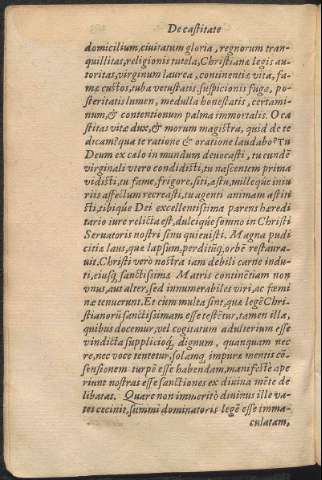 De castitate
domicilium, ciuitatum gloria, regnorum tran-
quillitas, religionis tutela, Christianæ legis au
toritas, virginum laurea, continentiæ vita, fa-
mæ custos, tuba venustatis, suspicionis fuga, po-
steritatis lumen, medulla honestatis, certami-
num, & contentionum palma immortalis. O ca
stitas vitæ dux, & morum magistra, quid de te
dicam? qua te ratione & oratione laudabo? Tu
Deum ex cælo in mundum deuocasti, tu eundē
virginali vtero condidisti, tu nascentem prima
vidisti, tu fame, frigore, siti, æstu, milleque iniu
riis affectum recreasti, tu agenti animam astiti
sti, tibique Dei excellentissima parens heredi
tario iure relicta est, dulcique somno in Christi
Seruatoris nostri sinu quieuisti. Magna pudi
citiæ laus, quæ lapsum, perditūq́; orbē restaura-
uit. Christi verò nostra iam debili carne indu-
ti, eiusq́; sanctissimæ Matris continētiam non
vnus, aut alter, sed innumerabiles viri, ac fœmi
næ tenuerunt. Et cum multa sint, quæ legē Chri-
stianorū sanctissimam esse testētur, tamen illæ,
quibus docemur, vel cogitatum adulterium esse
vindicta supplicioq́; dignum, quanquam nec
re, nec voce tentetur, solamq́; impuræ mentis cō-
sensionem turpē esse habendam, manifestè ape
riunt nostras esse sanctiones ex diuina mēte de
libatas. Quare non immeritò diuinus ille va-
tes cecinit, summi dominatoris legē esse imma-
culatam,